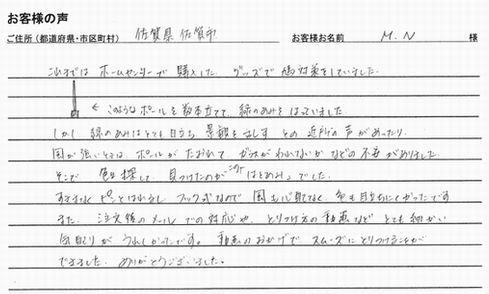 お客様の声
ご住所（都道府県・市区町村） 佐賀県佐賀市 お客様お名前 M.N 様
これまでは ホームセンターで購入した グッズで鳩対策をしていました。
← このようなポールを数本立てて、緑のあみをはっていました
しかし 緑のあみはとても目立ち、景観をこわす との 近所の声があったり、
風が強いときは、ポールが たおれて ガラスがわれないか などの不安がありました。
そこで 色々探して、見つけたのが この「はとあみ」でした。
すきまなく ピンとはれるし フック式なので 風も心配なく、色も目立ちにくかったです
また、注文後のメール での対応や、とりつけ方の動画など とても細かい
気配りが うれしかったです。 動画のおかげで スムーズにとりつけることが
できました。ありがとうございました。